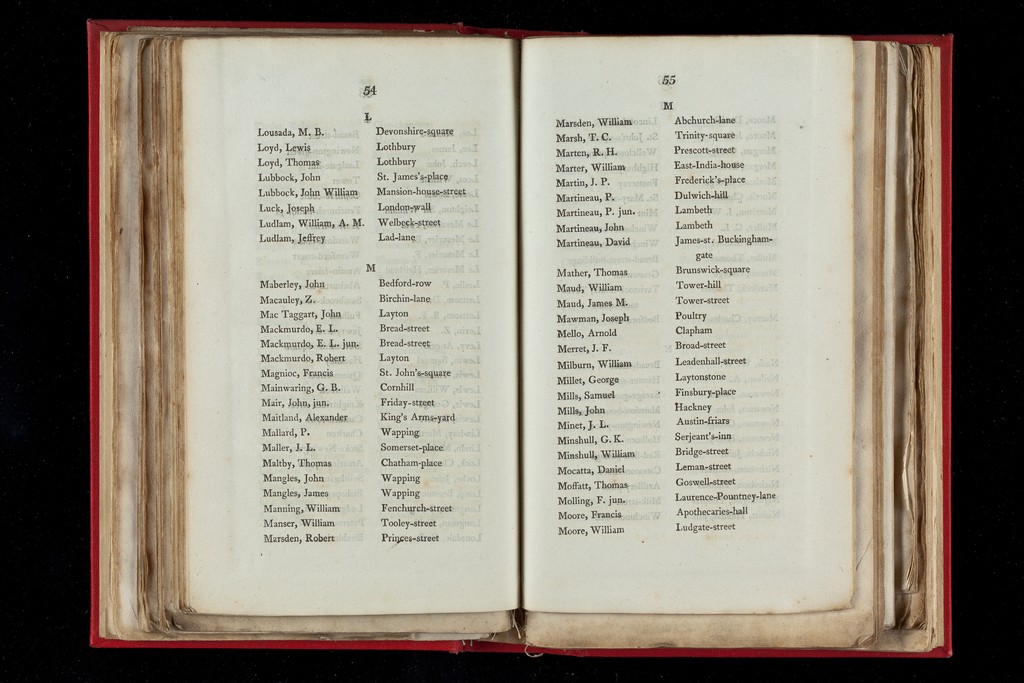 54
L
Lousada, M. B. Devonshire-square
Loyd, Lewis Lothbury
Loyd, Thomas Lothbury
Lubbock, John St. James's-place
Lubbock, John William Mansion-house-street
Luck, Joseph London-wall
Ludlam, William, A. M. Welbeck-street
Ludlam, Jeffrey Lad-lane
M
Maberley, John Bedford-row
Macauley, Z. Birchin-lane
Mac Taggart, John Layton
Mackmurdo, E. L. Bread-street
Mackmurdo, E. L. jun. Bread-street
Mackmurdo, Robert Layton
Magnioc, Francis St. John's-square
Mainwaring, G. B. Cornhill
Mair, John, jun. Friday-street
Maitland, Alexander King's Arms-yard
Mallard, P. Wapping
Maller, J. L. Somerset-place
Maltby, Thomas Chatham-place
Mangles, John Wapping
Mangles, James Wapping
Manning, William Fenchurch-street
Manser, William Tooley-street
Marsden, Robert Princes-street
55
M
Marsden, William Abchurch-lane
Marsh, T. C. Trinity-square
Marten, R. H. Prescott-street
Marter, William East-India-house
Martin, J. P. Frederick's-place
Martineau, P. Dulwich-hill
Martineau, P. jun. Lambeth
Martineau, John Lambeth
Martineau, David James-st. Buckingham-
gate
Mather, Thomas Brunswick-square
Maud, William Tower-hill
Maud, James M. Tower-street
Mawman, Joseph Poultry
Mello, Arnold Clapham
Merret, J. F. Broad-street
Milburn, William Leadenhall-street
Millet, George Laytonstone
Mills, Samuel Finsbury-place
Mills, John Hackney
Minet, J. L. Austin-friars
Minshull, G. K. Serjeant's-inn
Minshull, William Bridge-street
Mocatta, Daniel Leman-street
Moffatt, Thomas Goswell-street
Molling, F. jun. Laurence-Pountney-lane
Moore, Francis Apothecaries-hall
Moore, William Ludgate-street